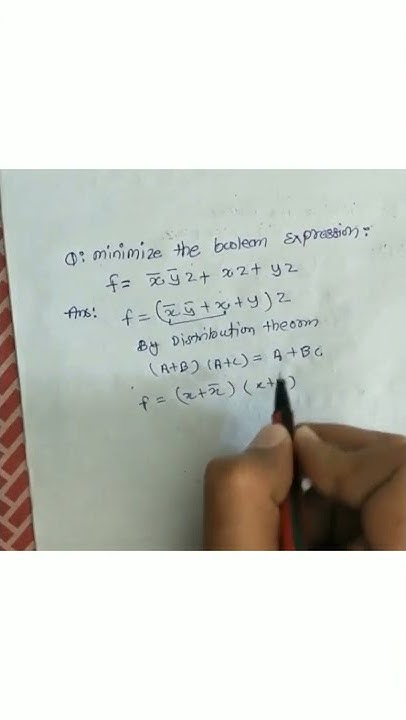 Q: minimize the boolean expression:
f = x̄ ȳ z + x z + y z
Ans: f = (x̄ ȳ + x + y) z
By Distribution theorm
(A+B) (A+C) = A + B C
f = (x + x̄) (x +